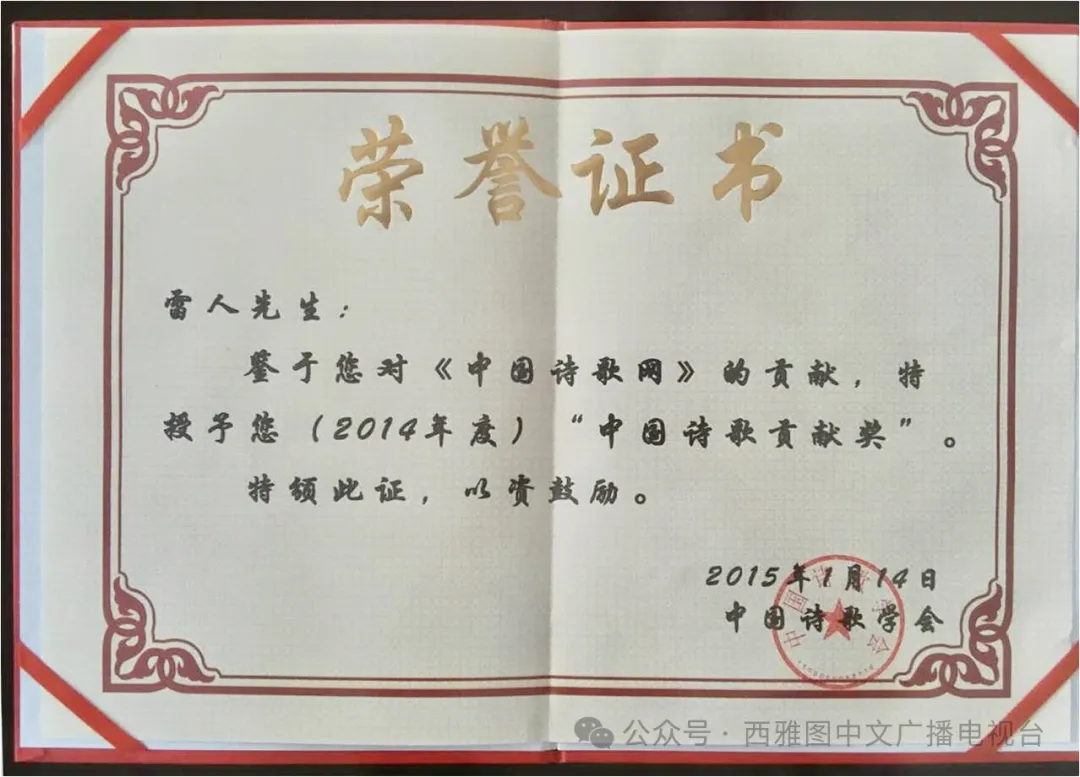 荣誉证书
雷人先生：
鉴于您对《中国诗歌网》的贡献，特
授予您（2014年度）“中国诗歌贡献奖”。
特颁此证，以资鼓励。
2015年1月14日
中国诗歌学会
中国诗歌学会
公众号·西雅图中文广播电视台